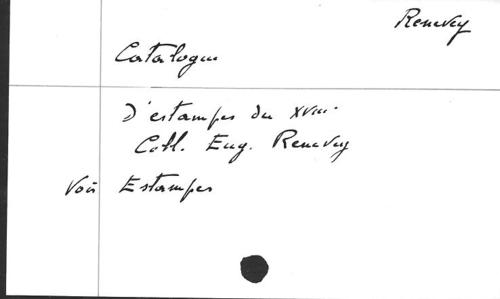 Renevey
Catalogue
D'estampes du XVIII.
Coll. Eug. Renevey
Voir Estampes